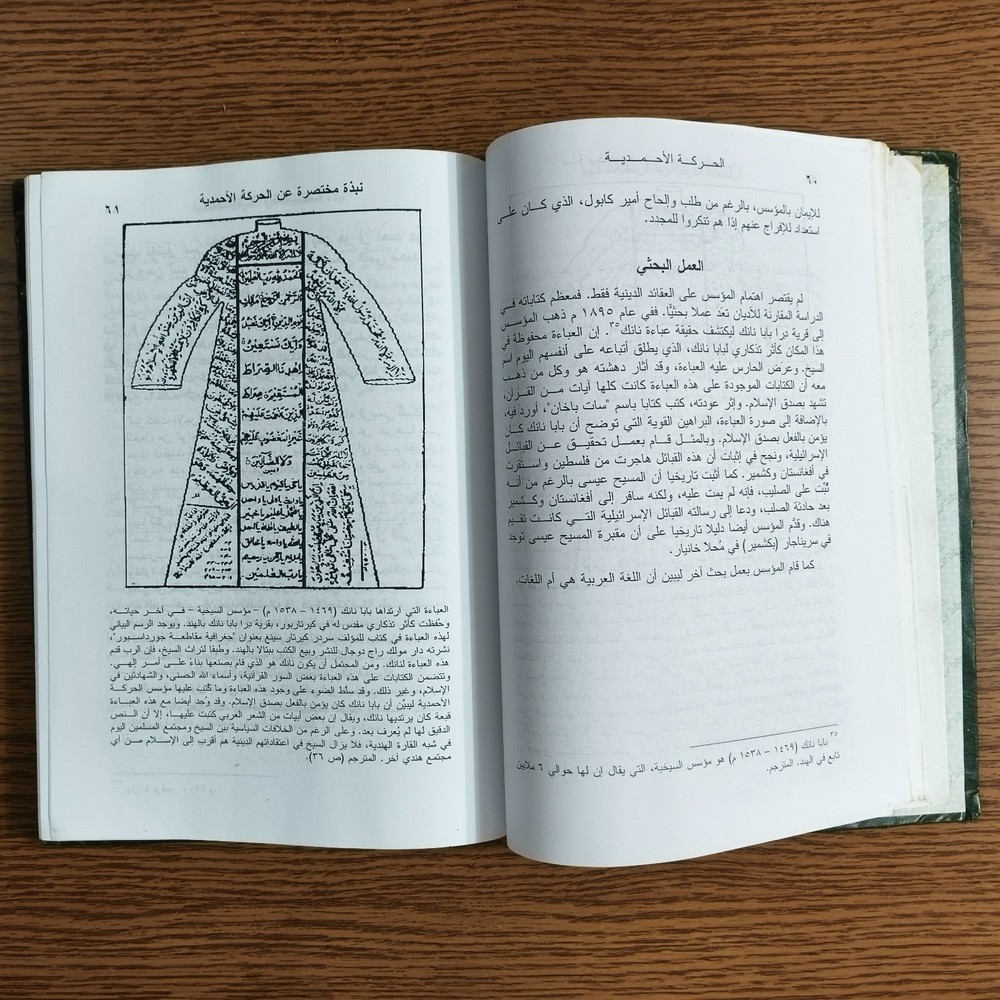 الحركة الأحمدية
٦٠
للإيمان بالمؤسس، بالرغم من طلب وإلحاح أمير كابول، الذي كان على
استعداد للإفراج عنهم إذا هم تنكروا للمجدد.
العمل البحثي
لم يقتصر اهتمام المؤسس على العقائد الدينية فقط. فمعظم كتاباته في
الدراسة المقارنة للأديان تعد عملا بحثيًّا. ففي عام ١٨٩٥ م ذهب المؤسس
إلى قرية درا بابا نانك ليكتشف حقيقة عباءة نانك٣٥. إن العباءة محفوظة في
هذا المكان كأثر تذكاري لبابا نانك، الذي يطلق أتباعه على أنفسهم اليوم اسم
السيخ. وعرض الحارس عليه العباءة، وقد أثار دهشته هو وكل من ذهب
معه أن الكتابات الموجودة على هذه العباءة كانت كلها آيات من القرآن،
تشهد بصدق الإسلام. وإثر عودته، كتب كتابا باسم "سات باخان"، أورد فيه،
بالإضافة إلى صورة العباءة، البراهين القوية التي توضح أن بابا نانك كان
يؤمن بالفعل بصدق الإسلام. وبالمثل قام بعمل تحقيق عن القبائل
الإسرائيلية، ونجح في إثبات أن هذه القبائل هاجرت من فلسطين واستقرت
في أفغانستان وكشمير. كما أثبت تاريخيا أن المسيح عيسى بالرغم من أنه
ثُبِّت على الصليب، فإنه لم يمت عليه، ولكنه سافر إلى أفغانستان وكشمير
بعد حادثة الصلب، ودعا إلى رسالته القبائل الإسرائيلية التي كانت تقيم
هناك. وقدَّم المؤسس أيضا دليلا تاريخيا على أن مقبرة المسيح عيسى توجد
في سريناجار (بكشمير) في مُحلا خانيار.
كما قام المؤسس بعمل بحث آخر ليبين أن اللغة العربية هي أم اللغات.
٣٥ بابا نانك (١٤٦٩ – ١٥٣٨ م) هو مؤسس السيخية، التي يقال إن لها حوالي ٦ ملايين
تابع في الهند. المترجم.
نبذة مختصرة عن الحركة الأحمدية
٦١
العباءة التي ارتداها بابا نانك (١٤٦٩ – ١٥٣٨ م) – مؤسس السيخية – في آخر حياته،
وحُفظت كأثر تذكاري مقدس له في كيرتاربور، بقرية درا بابا نانك بالهند. ويوجد الرسم البياني
لهذه العباءة في كتاب للمؤلف سردر كيرتار سينغ بعنوان "جغرافية مقاطعة جورداسبور"،
نشرته دار مولك راج دوجال للنشر وبيع الكتب ببتالا بالهند. وطبقا لتراث السيخ، فإن الرب قدم
هذه العباءة لنانك. ومن المحتمل أن يكون نانك هو الذي قام بصنعها بناءً على أمر إلهي.
وتتضمن الكتابات على هذه العباءة بعض السور القرآنية، وأسماء الله الحسنى، والشهادتين في
الإسلام، وغير ذلك. وقد سلَّط الضوء على وجود هذه العباءة وما كُتب عليها مؤسس الحركة
الأحمدية ليبيِّن أن بابا نانك كان يؤمن بالفعل بصدق الإسلام. وقد وُجد أيضا مع هذه العباءة
قبعة كان يرتديها نانك، ويقال إن بعض أبيات من الشعر العربي كتبت عليها، إلا أن النص
الدقيق لها لم يُعرف بعد. وعلى الرغم من الخلافات السياسية بين السيخ ومجتمع المسلمين اليوم
في شبه القارة الهندية، فلا يزال السيخ في اعتقاداتهم الدينية هم أقرب إلى الإسلام من أي
مجتمع هندي آخر. المترجم (ص ٣٦).